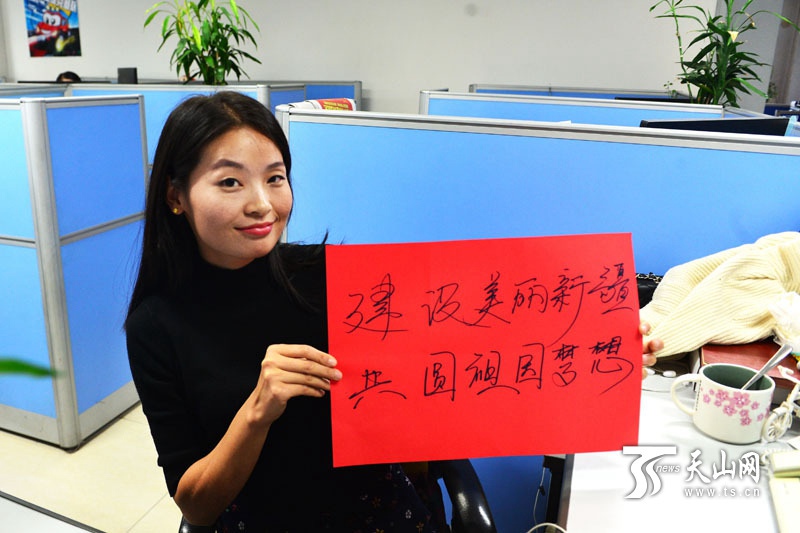 建设美丽新疆
共圆祖国梦想
TS news 天山网
www.ts.cn